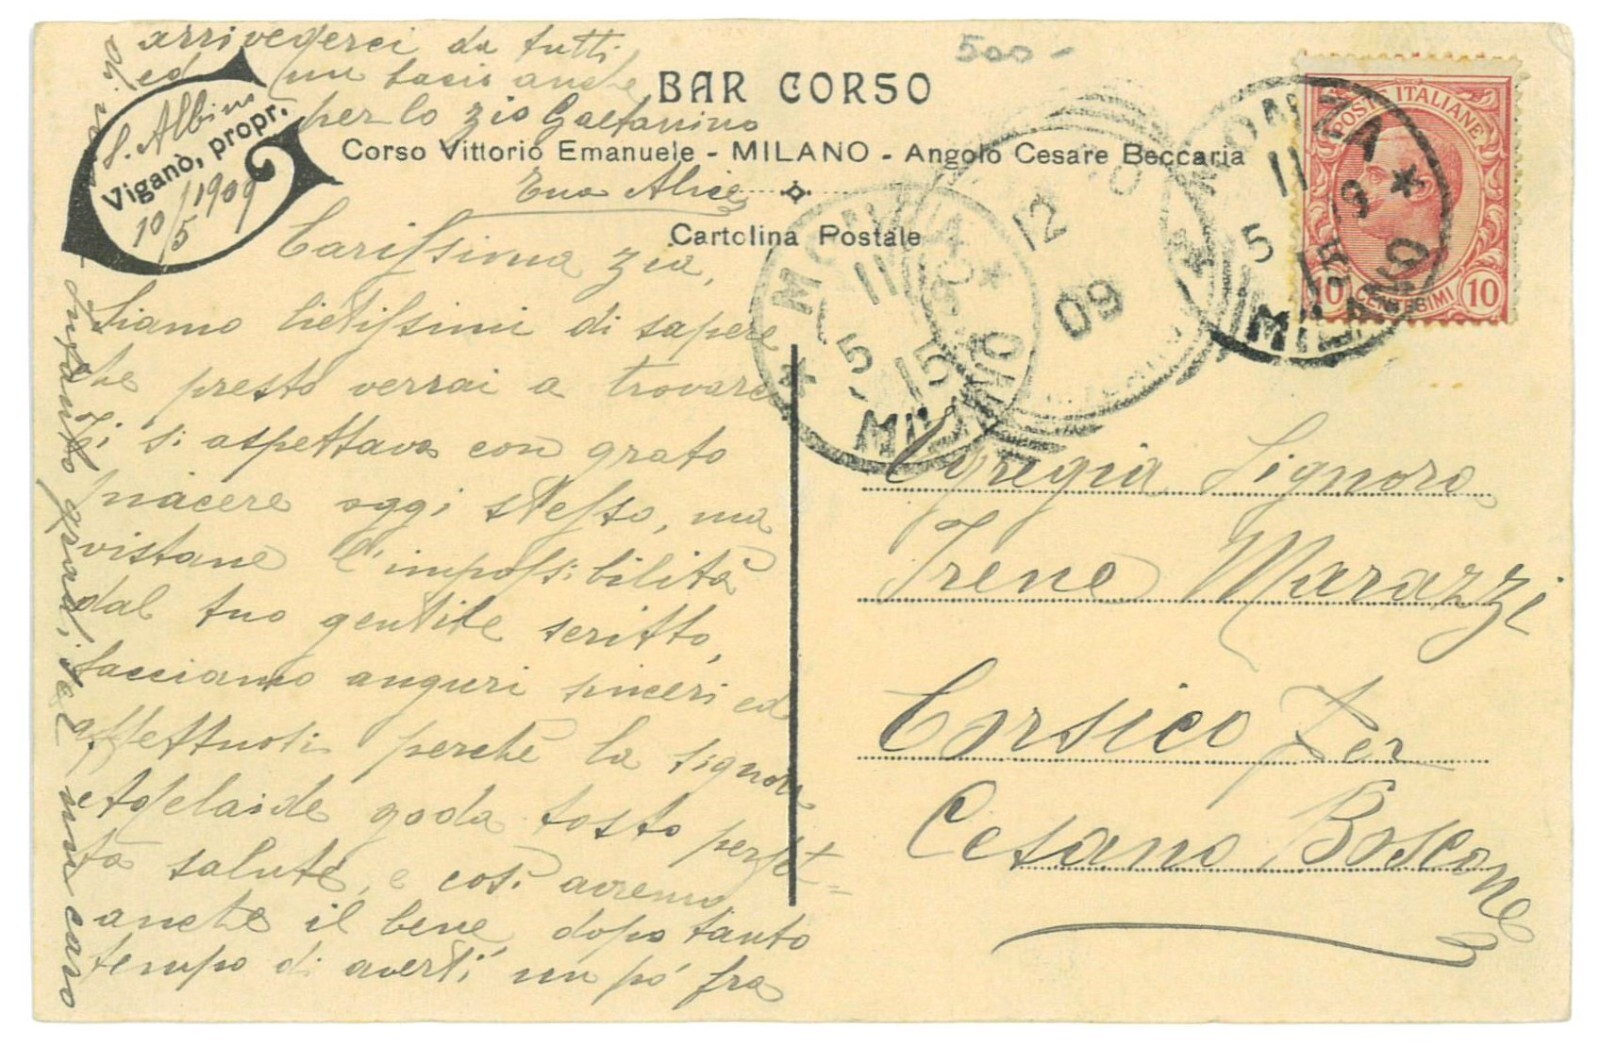 500-
BAR CORSO
Corso Vittorio Emanuele - MILANO - Angolo Cesare Beccaria
Cartolina Postale
Viganò, propr.
S. Albino
10/5 1909
Carissima zia,
Siamo lietissimi di sapere
che presto verrai a trovarci
Ti si aspettava con grato
piacere oggi stesso, ma
vistane l'impossibilità
dal tuo gentile scritto,
facciamo auguri sinceri ed
affettuosi perchè la signora
Adelaide goda tosto perfet=
ta salute, e così avremo
anche il bene, dopo tanto
tempo di averti un pò fra
di noi. Intanto gradisci un caro
arrivederci da tutti
ed un bacio anche
per lo zio Gaetanino
Tua Alice
POSTE ITALIANE
10 CENTESIMI 10
MONZA
11 5 09
MILANO
MONZA
11 5 09
15
MILANO
12
09
Egregia Signora
Irene Marazzi
Corsico per
Cesano Boscone